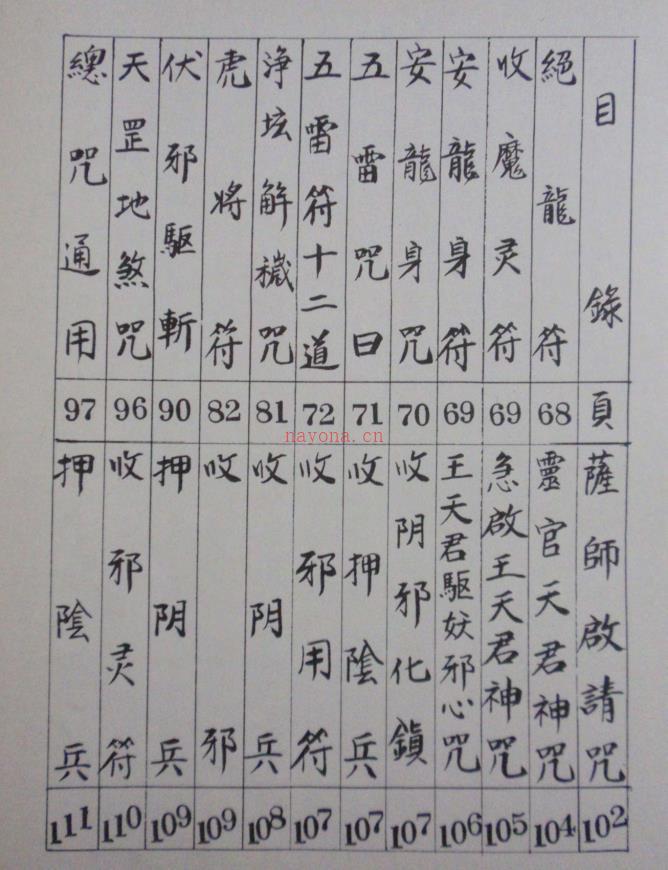 目錄 頁
絕龍符 68
收魔灵符 69
安龍身符 69
安龍身咒 70
五雷咒曰 71
五雷符十二道 72
淨坛解穢咒 81
虎將符 82
伏邪驅斬 90
天罡地煞咒 96
總咒通用 97
薩師啟請咒 102
靈官天君神咒 104
急啟王天君神咒 105
王天君驅妖邪心咒 106
收阴邪化鎖 107
收押陰兵 107
收邪用符 107
收阴兵 108
收邪 109
押阴兵 109
收邪灵符 110
押陰兵 111
nayona.cn